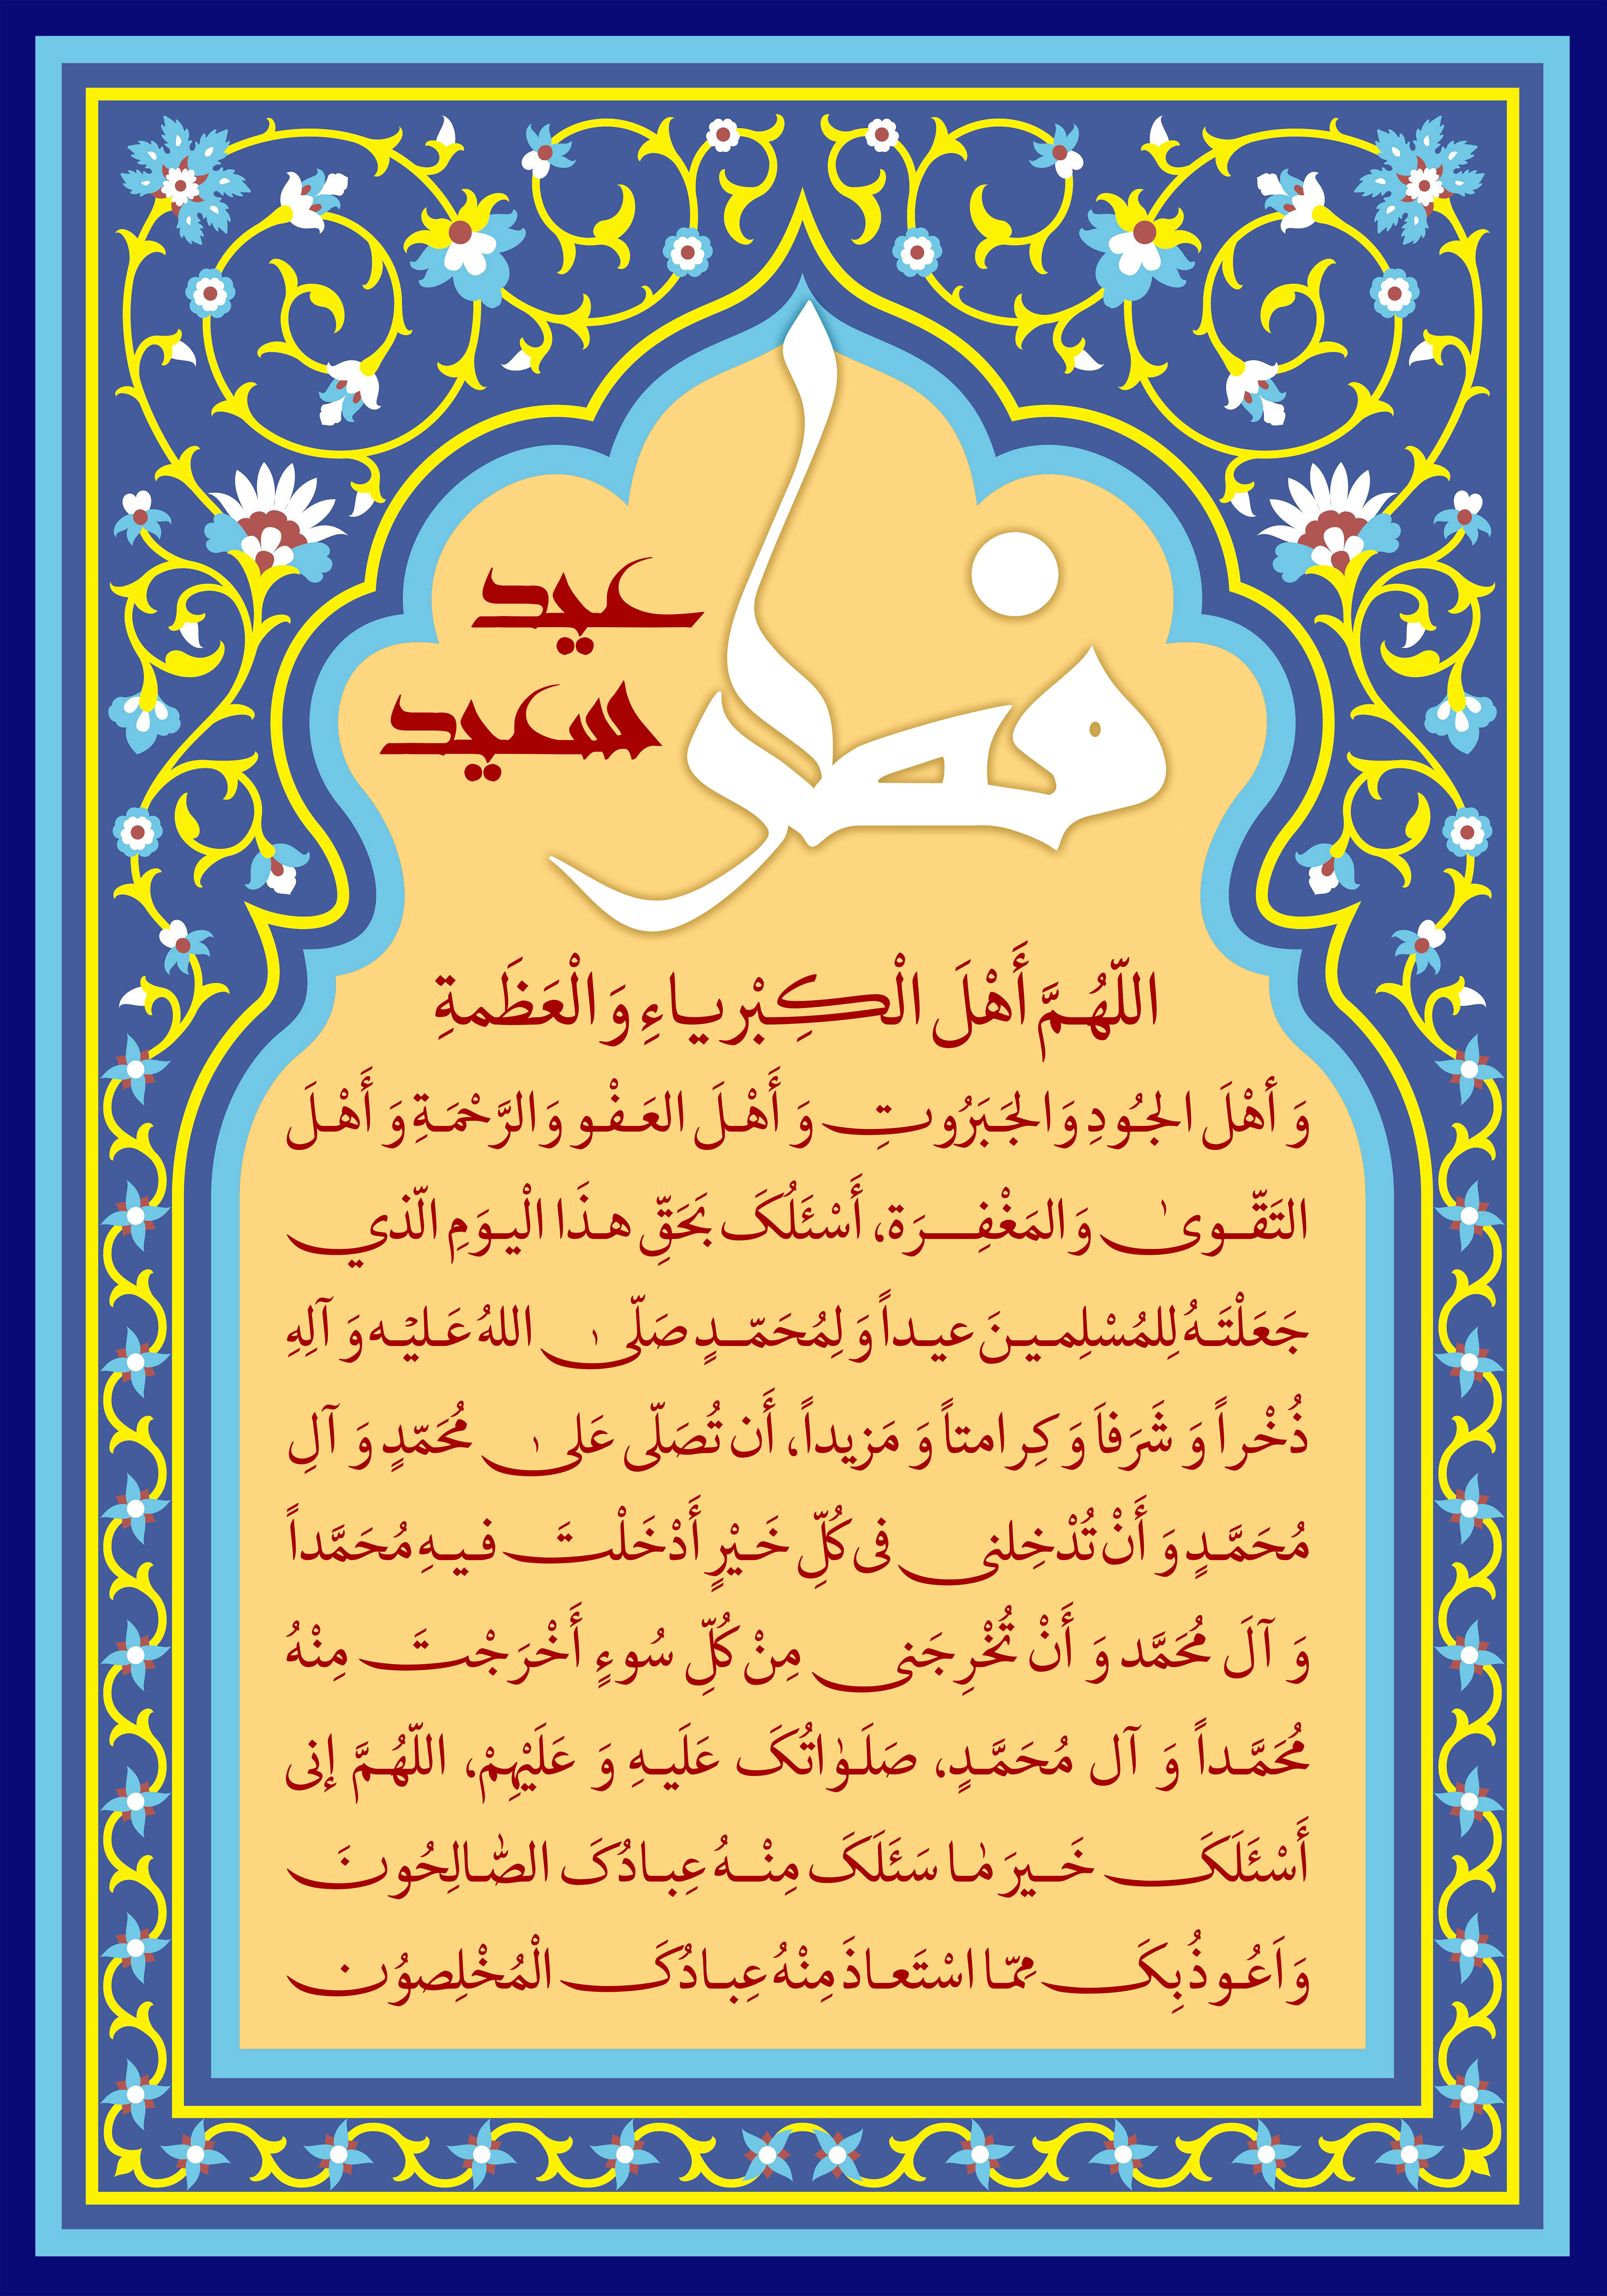 عید
سعید
فطر
اللّهُمَّ أَهْلَ الْكِبْرِیاءِ وَ الْعَظَمةِ
وَ أَهْلَ الجُودِ وَ الجَبَرُوتِ وَ أَهْلَ العَفْو وَ الرَّحْمَةِ وَ أَهْلَ
التَقّوىٰ وَ المَغْفِرَة، أَسْئَلُکَ بَحَقِّ هذَا الْیوَمِ الّذي
جَعَلْتَهُ لِلمُسْلِمینَ عیداً وَ لِمُحَمّدٍ صَلّىٰ اللهُ عَلیْه وَ آلِهِ
ذُخْراً وَ شَرَفاَ وَ کِرامتاً وَ مَزیداً، أَن تُصَلّی عَلىٰ مُحَمّدٍ وَ آلِ
مُحَمَّدٍ وَ أَنْ تُدْخِلنی فی کُلِّ خَیْرٍ أَدْخَلْتَ فیهِ مُحَمَّداً
وَ آلَ مُحَمَّد وَ أَنْ تُخْرِجَنی مِنْ کُلِّ سُوءٍ أَخْرَجْتَ مِنْهُ
مُحَمَّداً وَ آل مُحَمَّدٍ، صَلَوٰاتُکَ عَلَیهِ وَ عَلَیْهِمْ، اللّهُمَّ إنی
أَسْئَلَکَ خَیرَ مٰا سَئَلَکَ مِنْهُ عِبادُکَ الصّٰالِحُونَ
وَ اَعُوذُ بِکَ مِمّا اسْتَعاذَ مِنْهُ عِبادُکَ الْمُخْلِصوُن